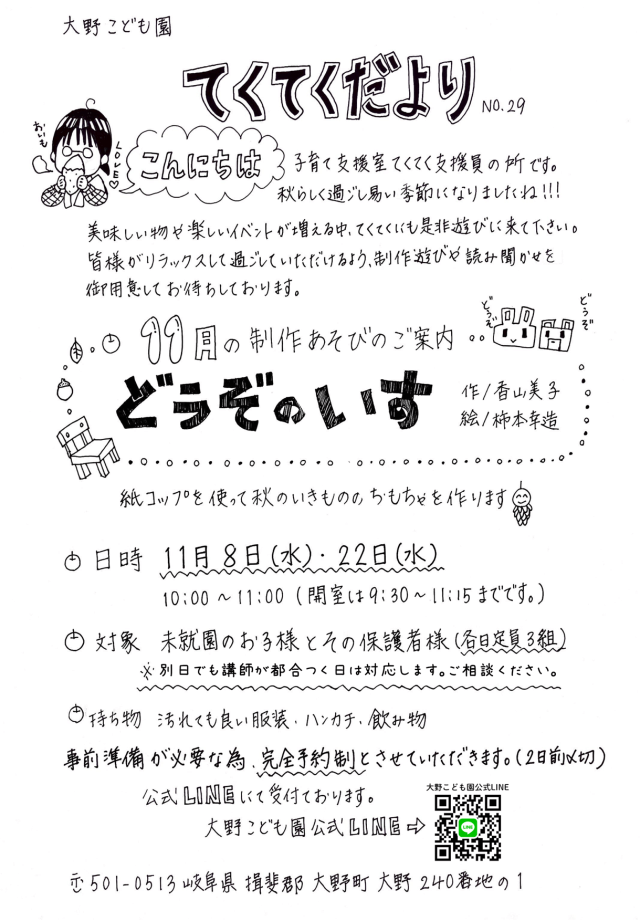 大野こども園
てくてくだより NO.29
おいも
LOVE♡
こんにちは
子育て支援室てくてく支援員の所です。
秋らしく過ごし易い季節になりましたね!!!
美味しい物や楽しいイベントが増える中、てくてくにも是非遊びに来て下さい。
皆様がリラックスして過ごしていただけるよう、制作遊びや読み聞かせを
御用意してお待ちしております。
どうぞ
どうぞ
11月の制作あそびのご案内
どうぞのいす
作/香山美子
絵/柿本幸造
紙コップを使って秋のいきもののおもちゃを作ります
日時 11月8日(水)・22日(水)
10:00～11:00 (開室は9:30～11:15までです。)
対象 未就園のお子様とその保護者様(各日定員3組)
※別日でも講師が都合つく日は対応します。ご相談ください。
持ち物 汚れても良い服装、ハンカチ、飲み物
事前準備が必要な為、完全予約制とさせていただきます。(2日前〆切)
公式LINEにて受付ております。
大野こども園公式LINE⇨
大野こども園公式LINE
LINE
〒501-0513 岐阜県 揖斐郡 大野町 大野 240番地の1